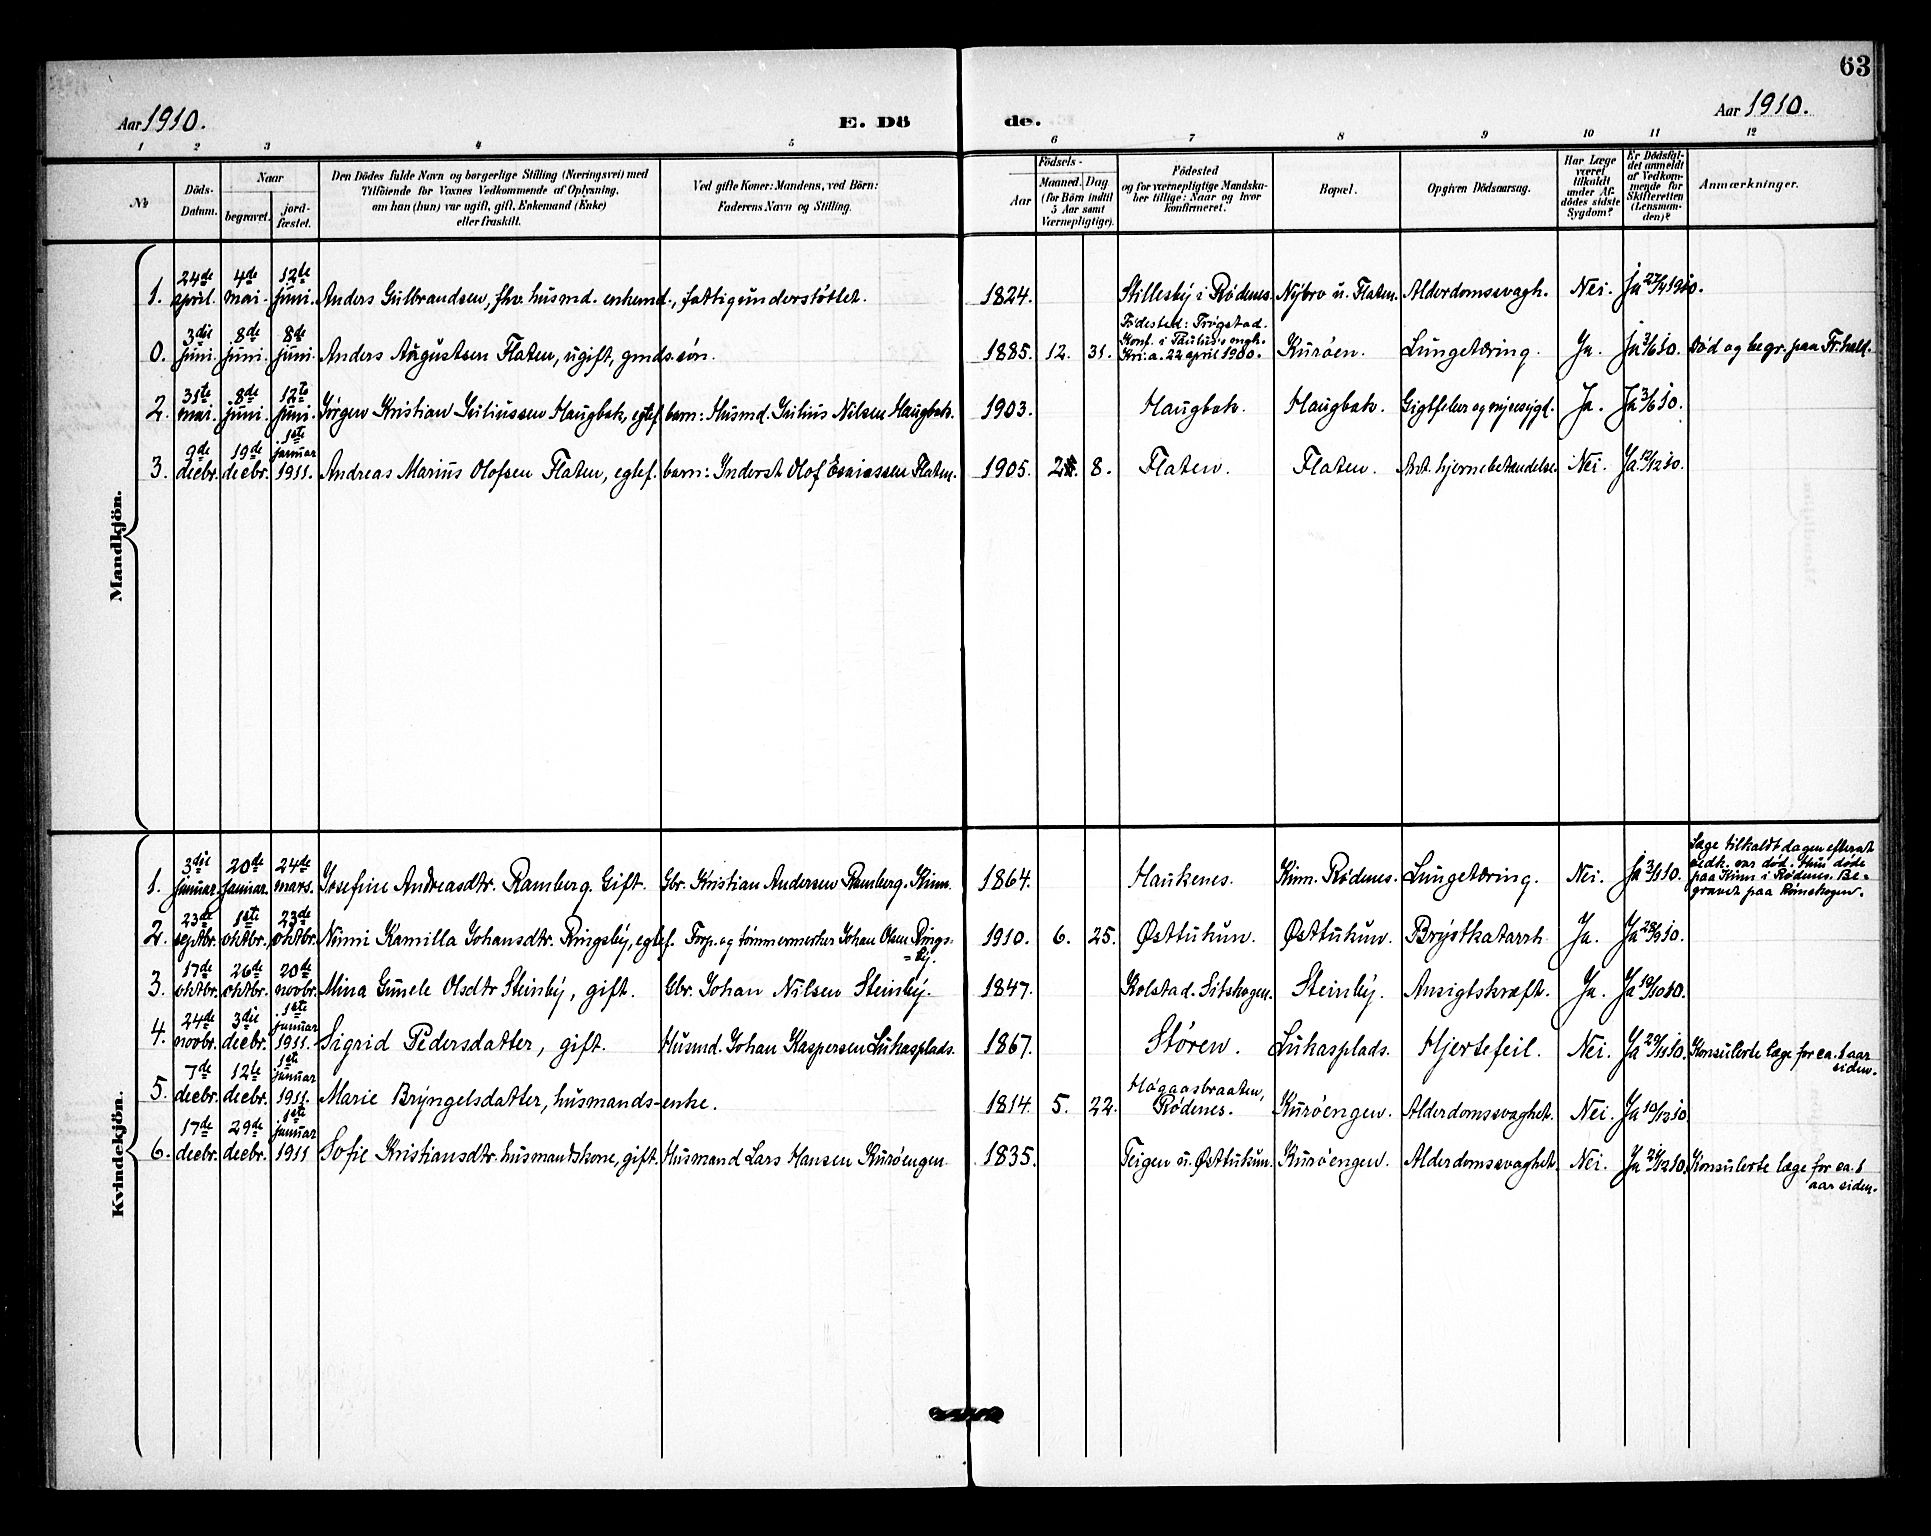 63
Aar 1910.
E. Dö de.
Aar 1910.
1 2 3 4 5 6 7 8 9 10 11 12
No
Döds-Datum.
Naar
begravet.
jord-fæstet.
Den Dödes fulde Navn og borgerlige Stilling (Næringsvei) med
Tilföiende for Voxnes Vedkommende af Oplysning,
om han (hun) var ugift, gift, Enkemand (Enke)
eller fraskilt.
Ved gifte Koner: Mandens, ved Börn:
Faderens Navn og Stilling.
Födsels-
Aar
Maaned. Dag
(for Börn indtil
5 Aar samt
Værnepligtige).
Födested
og for værnepligtige Mandska-
ber tillige: Naar og hvor
konfirmeret.
Bopæl.
Opgiven Dödsaarsag.
Har Læge
været
tilkaldt
under Af-
dödes sidste
Sygdom?
Er Dödsfal-
det anmeldt
af Vedkom-
mende for
Skifteretten
(Lensman-
den)?
Anmærkninger.
Mandkjön.
1. 24de april. 4de mai. 12te juni. Anders Gulbrandsen, fhv. husmd. enkemd., fattigunderstøttet. 1824. Stillesby i Rødenes. Nybro u. Flaten. Alderdomssvagh. Nei. Ja 27/4 1910.
0. 3die juni. 8de juni. 8de juni. Anders Augustsen Flaten, ugift, gmds.søn. 1885. 12. 31. Fødested: Trøgstad.
Konf. i Paulus mgh.
Kri.a. 22 april 1900. Kurøen. Lungetæring. Ja. Ja 3/6 10. Død og begr. paa Fr.hald.
2. 31te mai. 8de juni. 12te juni. Jørgen Kristian Juliussen Haugbak, egtef. barn: Husmd. Julius Nilsen Haugbak. 1903. Haugbak. Haugbak. Gigtfeber og nyresygd. Ja. Ja 3/6 10.
3. 9de decbr. 19de decbr. 1ste januar 1911. Andreas Marius Olofsen Flaten, egtef. barn: Inderst Olof Esaiassen Flaten. 1905. 2. 8. Flaten. Flaten. Ant. hjernebetændelse. Nei. Ja 12/12 10.
Kvindekjön.
1. 3die januar. 20de januar. 24de mars. Josefine Andreasdtr. Ramberg. Gift. Gbr. Kristian Andersen Ramberg. Kinn. 1864. Haukenes. Kinn. Rødenes. Lungetæring. Nei. Ja 3/1 10. Læge tilkaldt dagen efterat
vedk. var død. Hun døde
paa Kinn i Rødenes. Be-
gravet paa Rømskogen.
2. 23de septbr. 1ste oktbr. 23de oktbr. Nimi Kamilla Johansdtr. Ringsby, egtef. Forp. og tømmermerker Johan Olsen Rings-
=by. 1910. 6. 25. Østtukun. Østtukun. Brystkatarrh. Ja. Ja 28/9 10.
3. 17de oktbr. 26de oktbr. 20de novbr. Mina Gunele Olsdtr Steinby, gift. Gbr. Johan Nilsen Steinby. 1847. Kolstad. Sitskogen. Steinby. Ansigtskræft. Ja. Ja 19/10 10.
4. 24de novbr. 3die decbr. 1ste januar 1911. Sigrid Pedersdatter, gift. Husmd. Johan Kaspersen Lukasplads. 1867. Støren. Lukasplads. Hjertefeil. Nei. Ja 29/11 10. Konsulerte læge for ca. 1 aar
siden.
5. 7de decbr. 12te decbr. 1ste januar 1911. Marie Bryngelsdatter, husmands-enke. 1814. 5. 22. Høgaasbraaten,
Rødenes. Kurøengen. Alderdomssvaghet. Nei. Ja 10/12 10.
6. 17de decbr. 29de decbr. 1ste januar 1911 Sofie Kristiansdtr. husmandskone, gift. Husmand Lars Hansen Kurøengen 1835. Teigen u. Østtukun. Kurøengen. Alderdomssvaghet. Nei. Ja 21/12 10. Konsulerte læge for ca. 1
aar siden.